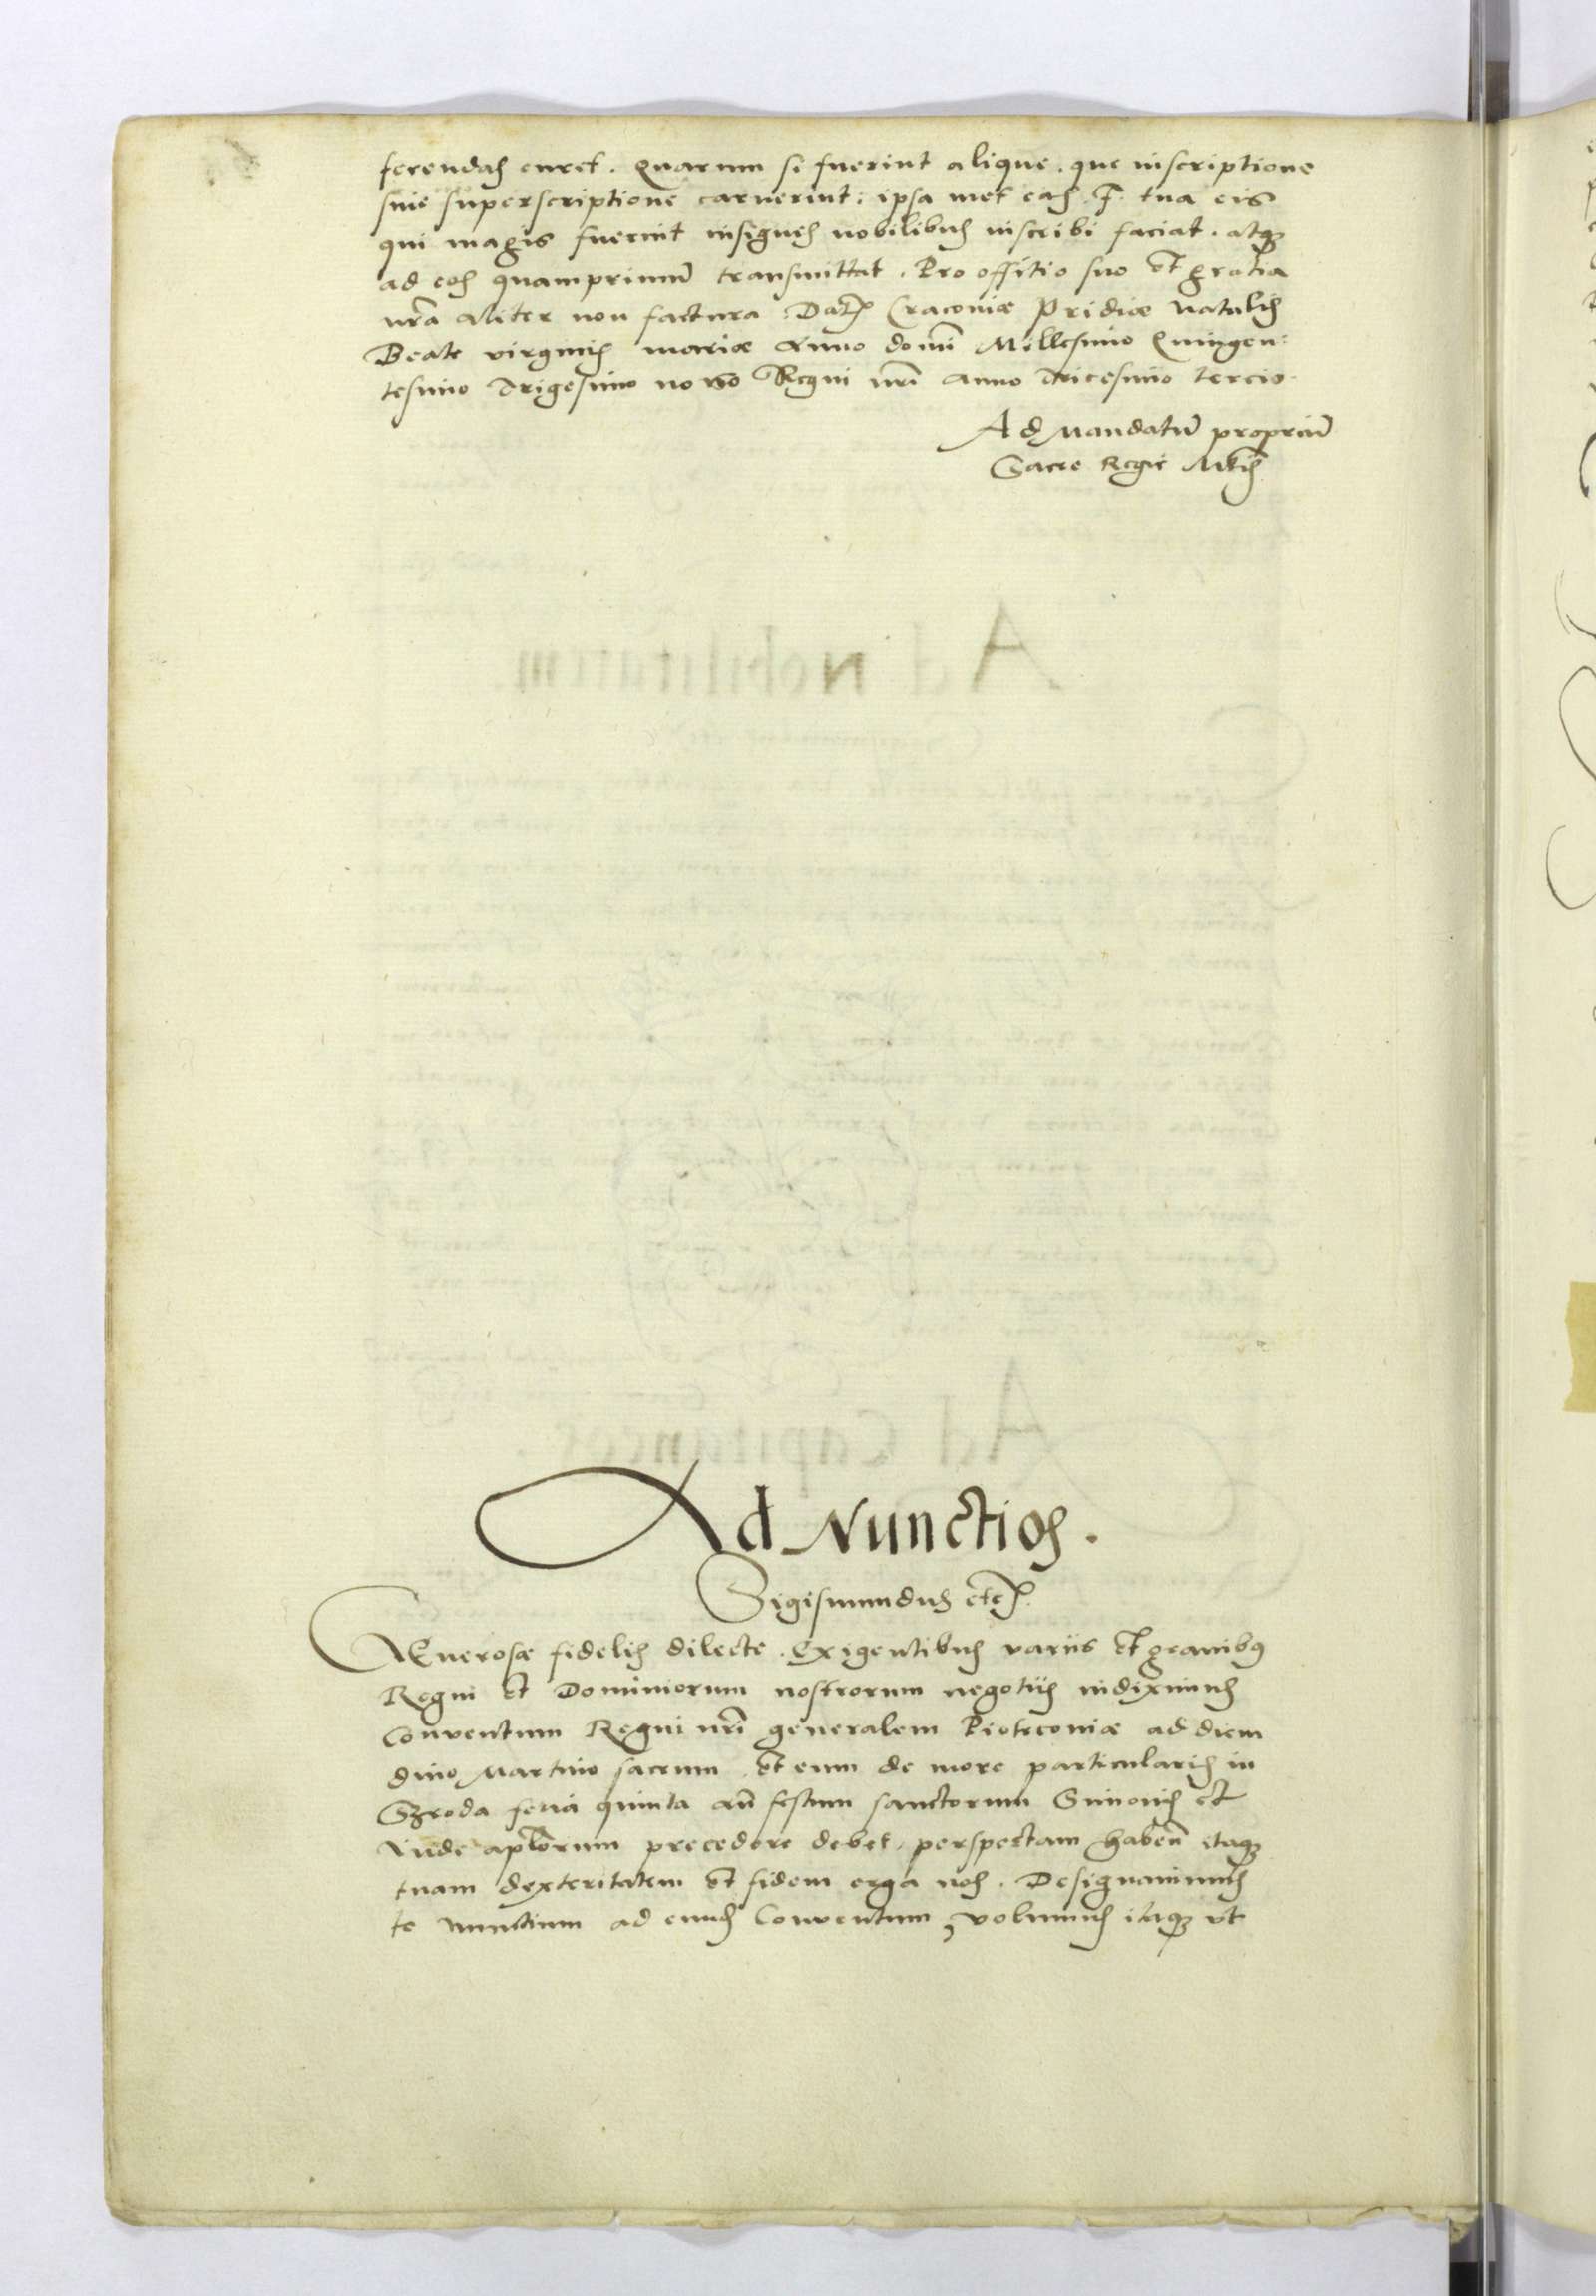 ferendas curet. Quarum si fuerint alique. que inscriptione
sive superscriptione caruerint: ipsa met eas. F. tua eis
qui magis fuerint insignes nobilibus inscribi faciat. atq3
ad eos quamprimū transmittat. Pro offitio suo et gratia
nrã aliter non factura. Dat Cracoviæ Pridiæ Natalis
Beate virginis mariæ Anno domī Millesimo Quingen:
tesimo Trigesimo nono Regni nrī anno tricesimo tercio.
Ad Mandatū propriū
Sacre Regie Mtis
Ad Nunctios.
Sigismundus etc.
GEnerosæ fidelis dilecte. Exigentibus variis et gravibus
Regni et Dominiorum nostrorum negotiis indiximus
Conventum Regni nrī generalem Piotrcoviæ ad diem
divo Martino sacrum. et eum de more particularis in
Szroda feria quinta an̄ festum sanctorum Simonis et
Iude apl̄orum precedere debet, perspectam haben̄ itaq3
tuam dexteritatem et fidem erga nos. Designavimus
te nunctium ad eundem Conventum, volumus itaq3 ut